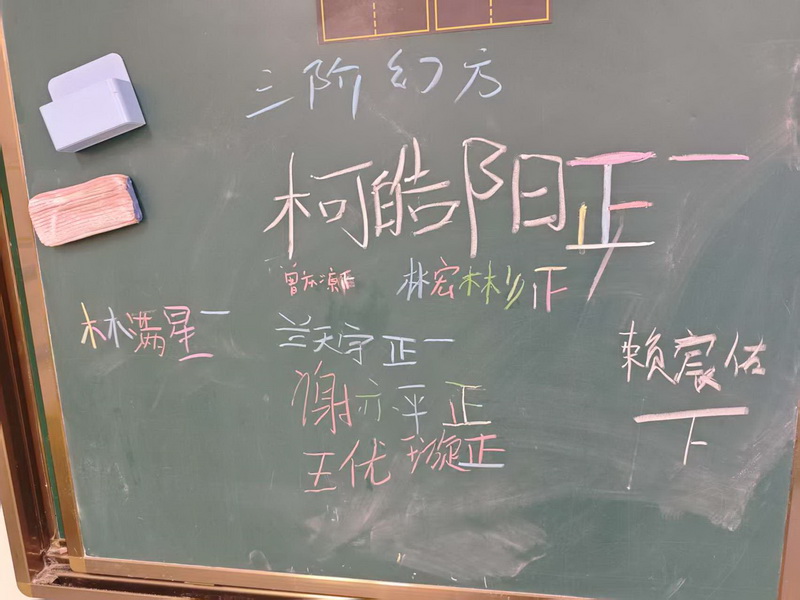 三阶幻方
柯皓阳正一
林宏彬正
林满星一
兰天宇正一
赖宸佑
下
谢亦平正
王优璇正